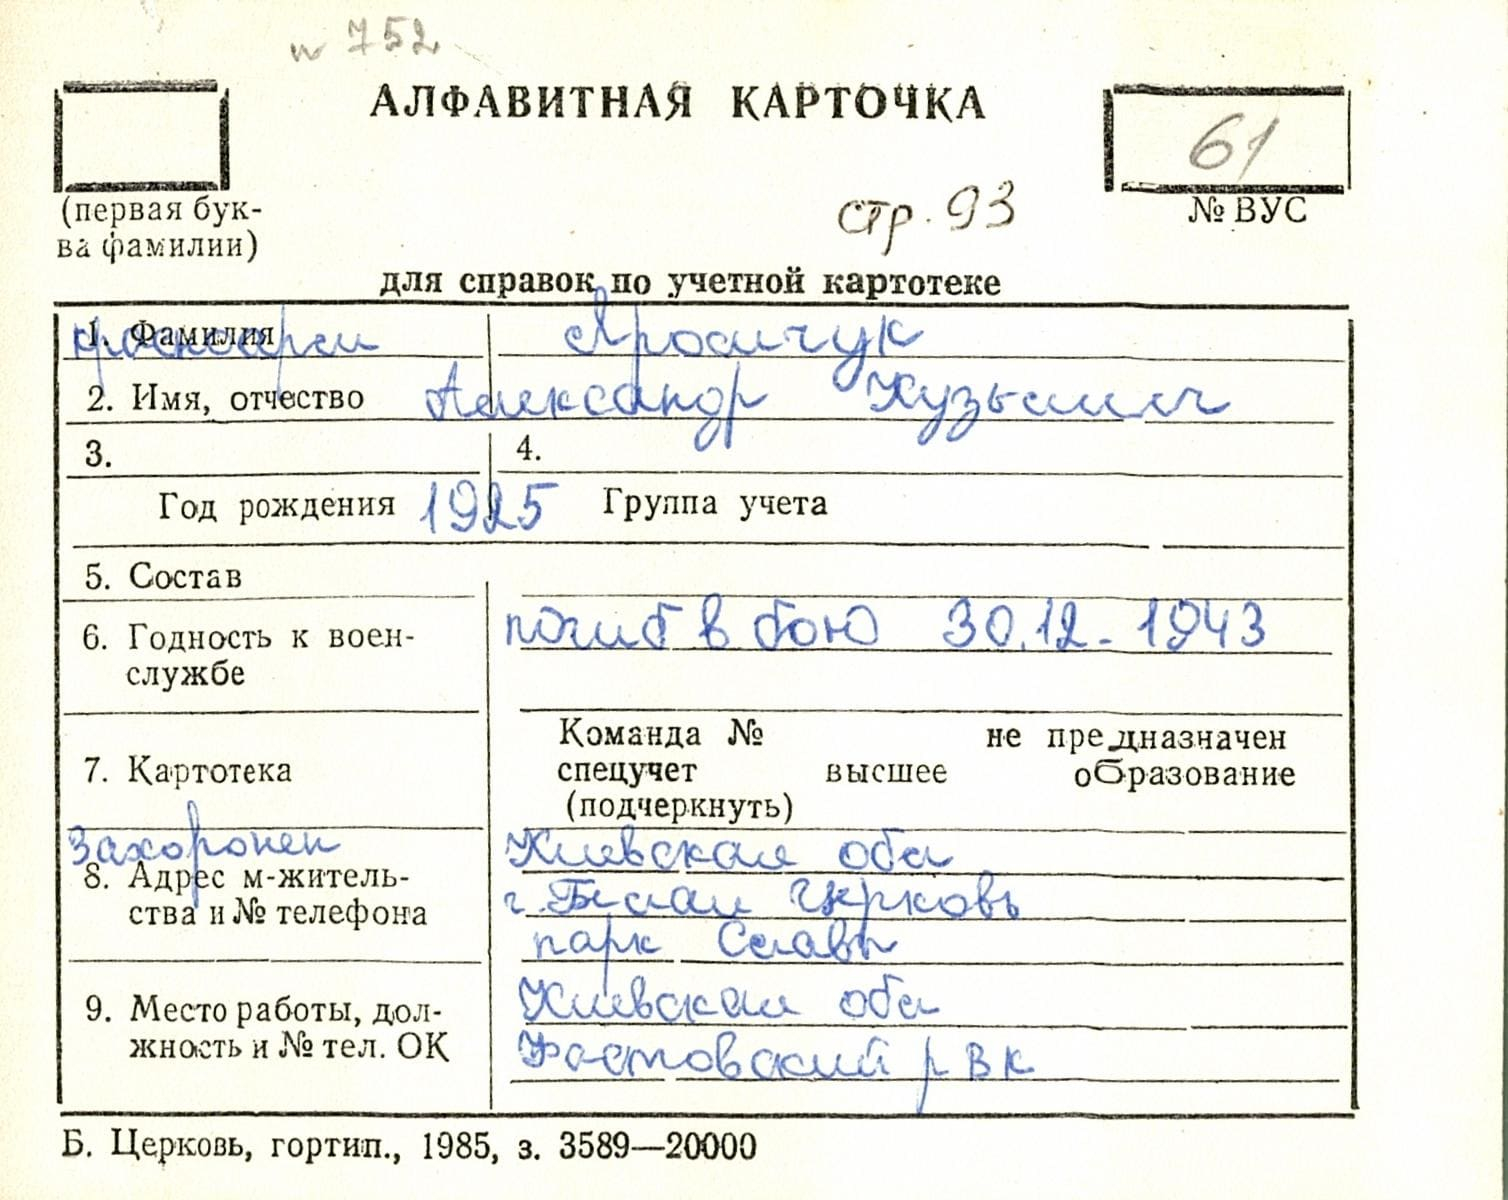 п 752
АЛФАВИТНАЯ КАРТОЧКА
61
(первая бук-
ва фамилии)
стр. 93
№ ВУС
для справок по учетной картотеке
1. Фамилия
2. Имя, отчество Александр Кузьмич
3.
4.
Год рождения 1925 Группа учета
5. Состав
6. Годность к воен-
службе
погиб в бою 30.12-1943
7. Картотека
Команда № не предназначен
спецучет высшее образование
(подчеркнуть)
Захоронен
8. Адрес м-житель-
ства и № телефона
Киевская обл
г. Белая Церковь
парк Славы
9. Место работы, дол-
жность и № тел. ОК
Киевская обл
Фастовский рвк
Б. Церковь, гортип., 1985, з. 3589—20000